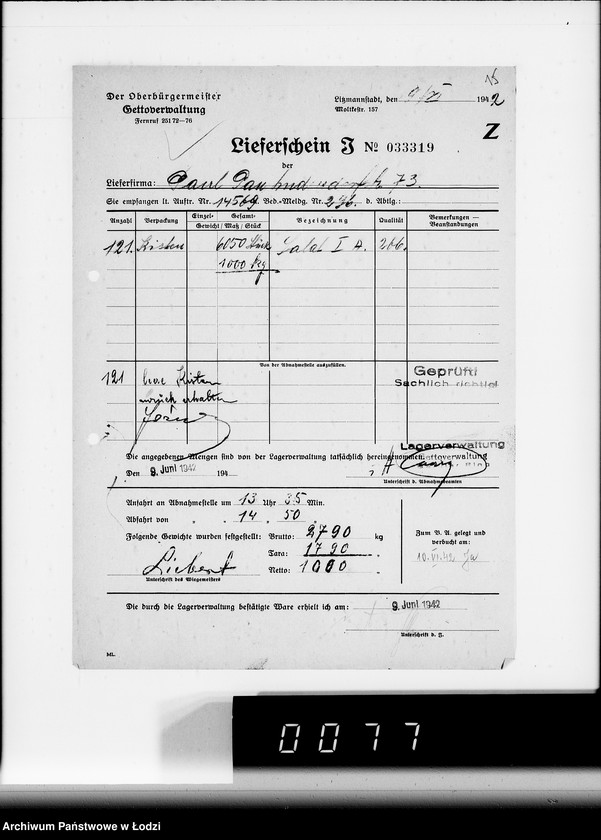 15
Der Oberbürgermeister
Gettoverwaltung
Fernruf 251 72—76
Litzmannstadt, den 9/VI 1942
Moltkestr. 157
Z
Lieferschein J № 033319
der
Lieferfirma: Paul 73.
Sie empfangen lt. Auftr. Nr. 14569 Bed.-Meldg. Nr. 296. d. Abtlg.:
Anzahl Verpackung Einzel- Gesamt- Gewicht / Maß / Stück Bezeichnung Qualität Bemerkungen — Beanstandungen
121. Kisten 6050 Stück Salat I A. 266.
1000 kg
Von der Abnahmestelle auszufüllen.
121 leere Kisten
zurück erhalten
Geprüft!
Sachlich richtig!
Lagerverwaltung
Gettoverwaltung
Die angegebenen Mengen sind von der Lagerverwaltung tatsächlich hereingenommen.
Den 9. Juni 1942 194
Unterschrift d. Abnahmebeamten
Anfahrt an Abnahmestelle um 13 Uhr 35 Min.
Abfahrt von " " 14 " 50 "
Folgende Gewichte wurden festgestellt: Brutto: 2790 kg
Tara: 1790 "
Netto: 1000 "
Liebert
Unterschrift des Wiegemeisters
Zum B. A. gelegt und
verbucht am:
10. VI. 42
Die durch die Lagerverwaltung bestätigte Ware erhielt ich am: 9. Juni 1942
Unterschrift d. F.
ML.
0077
Archiwum Państwowe w Łodzi